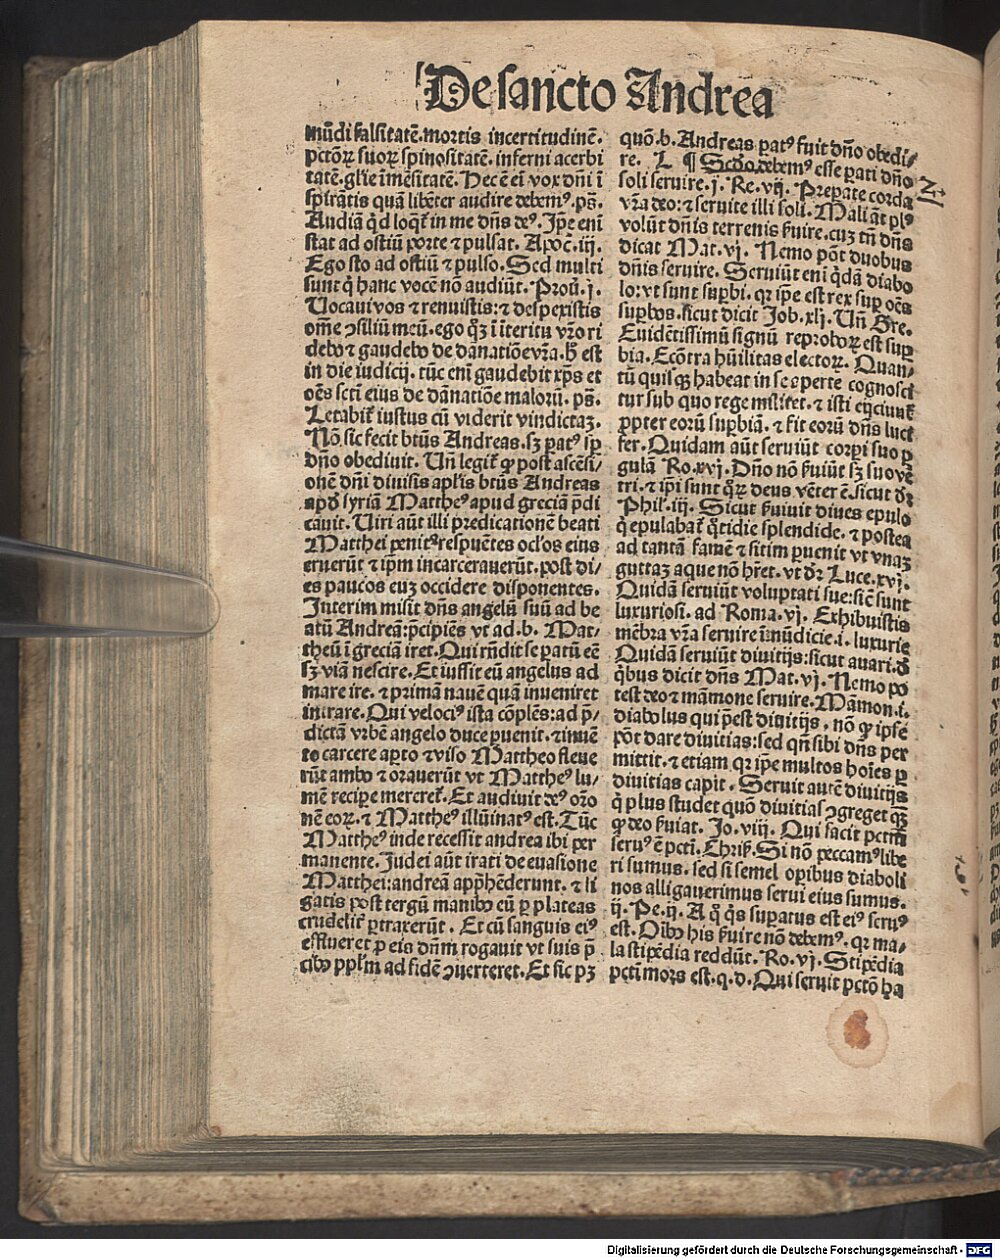 De sancto Andrea
mūdi falsitatē.mortis incertitudinē.
pctōꝝ suoꝝ spinositatē.inferni acerbi
tatē.gl'ie īmēsitatē. Hec ē eī vox dn̄i ī
spirātis quā libēter audire debemꝰ. ps̄.
Audiā qd̓ loqt̄ in me dn̄s deꝰ. Ip̄e enī
stat ad ostiū porte ⁊ pulsat. Apoc̄. iij.
Ego sto ad ostiū ⁊ pulso. Sed multi
sunt q̇ hanc vocē nō audiūt. Prou̇. j.
Uocaui vos ⁊ renuistis: ⁊ despexistis
om̄e ꝯsiliū meū. ego qꝫ ī īteritu vr̄o ri
debo ⁊ gaudebo de dānatiōe vr̄a. h̄ est
in die iudicij. tūc enī gaudebit xp̄s et
oēs scti eius de dānatiōe maloꝝ. ps̄.
Letabit̄ iustus cū viderit vindictaꝫ.
Nō sic fecit btūs Andreas. sꝫ patꝰ sp̄
dn̄o obediuit. Un̄ legit̄ ꝙ post ascēsi/
onē dn̄i diuisis apl'is btūs Andreas
apd̓ syriā Mattheꝰ apud greciā p̄di
cauit. Uiri aūt illi predicationē beati
Matthei penitꝰ respuētes ocl'os eius
eruerūt ⁊ ip̄m incarcerauerūt. post di/
es paucos euꝫ occidere disponentes.
Interim misit dn̄s angelū suū ad be
atū Andreā: p̄cipiēs vt ad .b. Mat/
theū ī greciā iret. Qui rn̄dit se patū eē
sꝫ viā nescire. Et iussit eū angelus ad
mare ire. ⁊ primā nauē quā inueniret
intrare. Qui velociꝰ ista cōplēs: ad p̄/
dictā vrbē angelo duce puenit. ⁊ inuē
to carcere apto ⁊ viso Mattheo fleue
rūt ambo ⁊ orauerūt vt Mattheꝰ lu/
mē recipe mereret̄. Et audiuit deꝰ orō
nē eoꝝ. ⁊ Mattheꝰ illūinatꝰ est. Tūc
Mattheꝰ inde recessit andrea ibi per
manente. Judei aūt irati de euasione
Matthei: andreā app̄hēderunt. ⁊ li
gatis post tergū manibꝰ eū ꝑ plateas
crudelit̄ ptraxerūt. Et cū sanguis eiꝰ
efflueret ꝑ eis dn̄m rogauit vt suis p̄
cibꝰ ppl'm ad fidē ꝯuerteret. Et sic pꝫ
quō .b. Andreas patꝰ fuit dn̄o obedi/
re. L ¶ Scd̓o debemꝰ esse pati dn̄o
soli seruire. j. Re. vij. Prepate corda
vr̄a deo: ⁊ seruite illi soli. Mali āt plꝰ
volūt dn̄is terrenis ẜuire. cuꝫ tn̄ dn̄s
dicat Mat. vj. Nemo pōt duobus
dn̄is seruire. Seruiūt enī qdā diabo
lo: vt sunt supbi. qꝛ ip̄e est rex sup oēs
supbos. sicut dicit Job. xlj. Un̄ Gre.
Euidētissimū signū reproboꝝ est sup
bia. Ecōtra hūilitas electoꝝ. Quan/
tū quisqꝫ habeat in se aperte cognosci
tur sub quo rege militet. ⁊ isti eijciunt̄
ppter eorū supbiā. ⁊ fit eorū dn̄s luci
fer. Quidam aūt seruiūt corpi suo p
gulā Ro. xvj. Dn̄o nō ẜuiūt sꝫ suo vē
tri. ⁊ ip̄i sunt qꝝ deus vēter ē. sicut dr̄
Phil'. iij. Sicut ẜuiuit diues epulo
q̇ epulabat̄ qtidie splendide. ⁊ postea
ad tantā famē ⁊ sitim puenit vt vnaꝫ
guttaꝫ aque nō hr̄et. vt dr̄ Luce. xvj.
Quidā seruiūt voluptati sue: sic̄ sunt
luxuriosi. ad Roma. vj. Exhibuistis
mēbra vr̄a seruire īmūdicie .i. luxurie
Quidā seruiūt diuitijs: sicut auari. d̓
qbus dicit dn̄s Mat. vj. Nemo po
test deo ⁊ māmone seruire. Māmon .i.
diabolus qui p̄est diuitijs. nō ꝙ ipse
pōt dare diuitias: sed qn̄ sibi dn̄s per
mittit. ⁊ etiam qꝛ ip̄e multos hoīes ꝑ
diuitias capit. Seruit autē diuitijs
q̇ plus studet quō diuitias ꝯgreget qꝫ
ꝙ deo ẜuiat. Jo. viij. Qui facit pctm̄
seruꝰ ē pcti. Chriẜ. Si nō peccamꝰ libe
ri sumus. sed si semel opibus diaboli
nos alligauerimus serui eius sumus.
ij. Pe. ij. A q̇ qs supatus est eiꝰ seruꝰ
est. Oibꝰ his ẜuire nō debemꝰ. qꝛ ma/
la stipēdia reddūt. Ro. vj. Stipēdia
pcti mors est. q. d. Qui seruit pctō ha
2
Digitalisierung gefördert durch die Deutsche Forschungsgemeinschaft - DFG